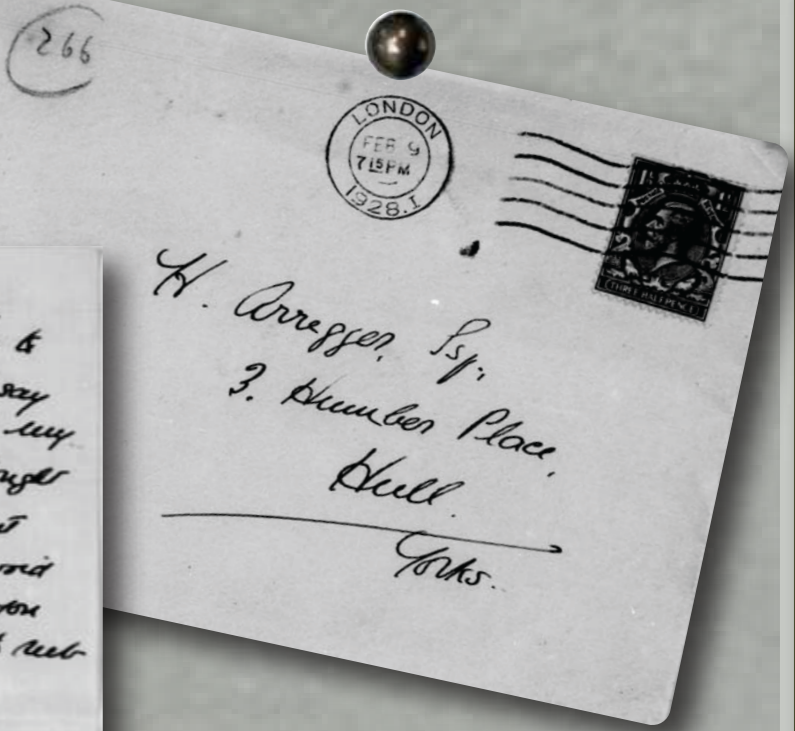 266
LONDON
FEB 9
7 15 PM
1928.I
THREE HALFPENCE
H. Arregger, Esq.,
3. Humber Place,
Hull.
Yorks.
say
my